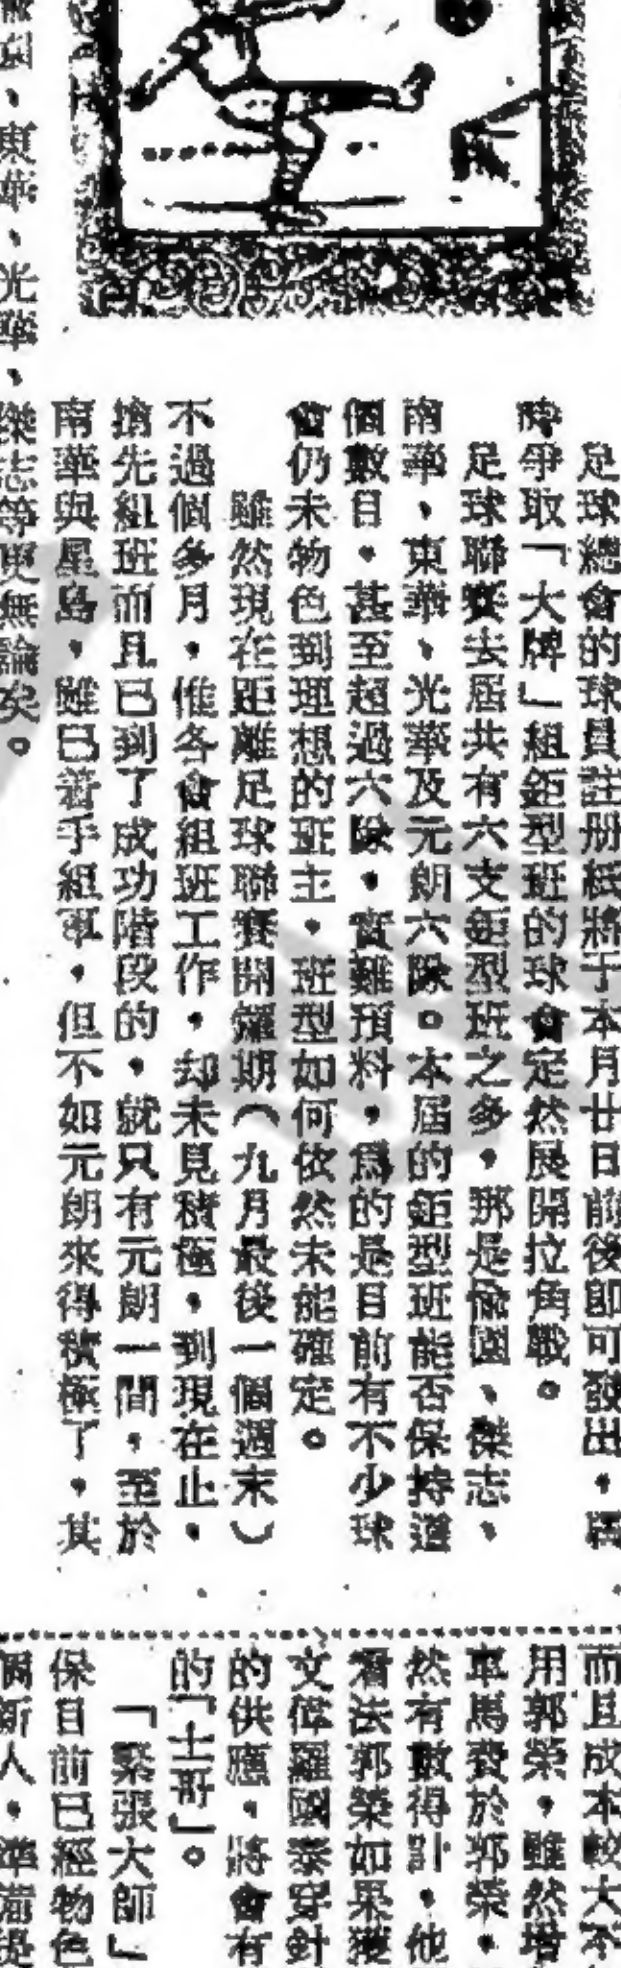 足球總會的球員註册紙將于本月廿日前後卽可發出，屆
時爭取「大牌」組鉅型班的球會定然展開拉角戰。
足球聯賽去屆共有六支鉅型班之多，那是愉園、傑志、
南華、東華、光華及元朗六隊。本屆的鉅型班能否保持這
個數目，甚至超過六隊，實難預料，爲的是目前有不少球
會仍未物色到理想的班主，班型如何依然未能確定。
雖然現在距離足球聯賽開鑼期（九月最後一個週末）
不過個多月，惟各會組班工作，却未見積極，到現在止，
搶先組班而且已到了成功階段的，就只有元朗一間，至於
南華與星島，雖已着手組軍，但不如元朗來得積極了，其
園、東華、光華、傑志等更無論矣。
而且成本較大不
用郭榮，雖然增
車馬費於郭榮，
然有數得計，他
看法郭榮如果獲
文偉羅國泰穿針
的供應，將會有
的「士哥」。
「緊張大師」
保目前已經物色
個新人，準備提